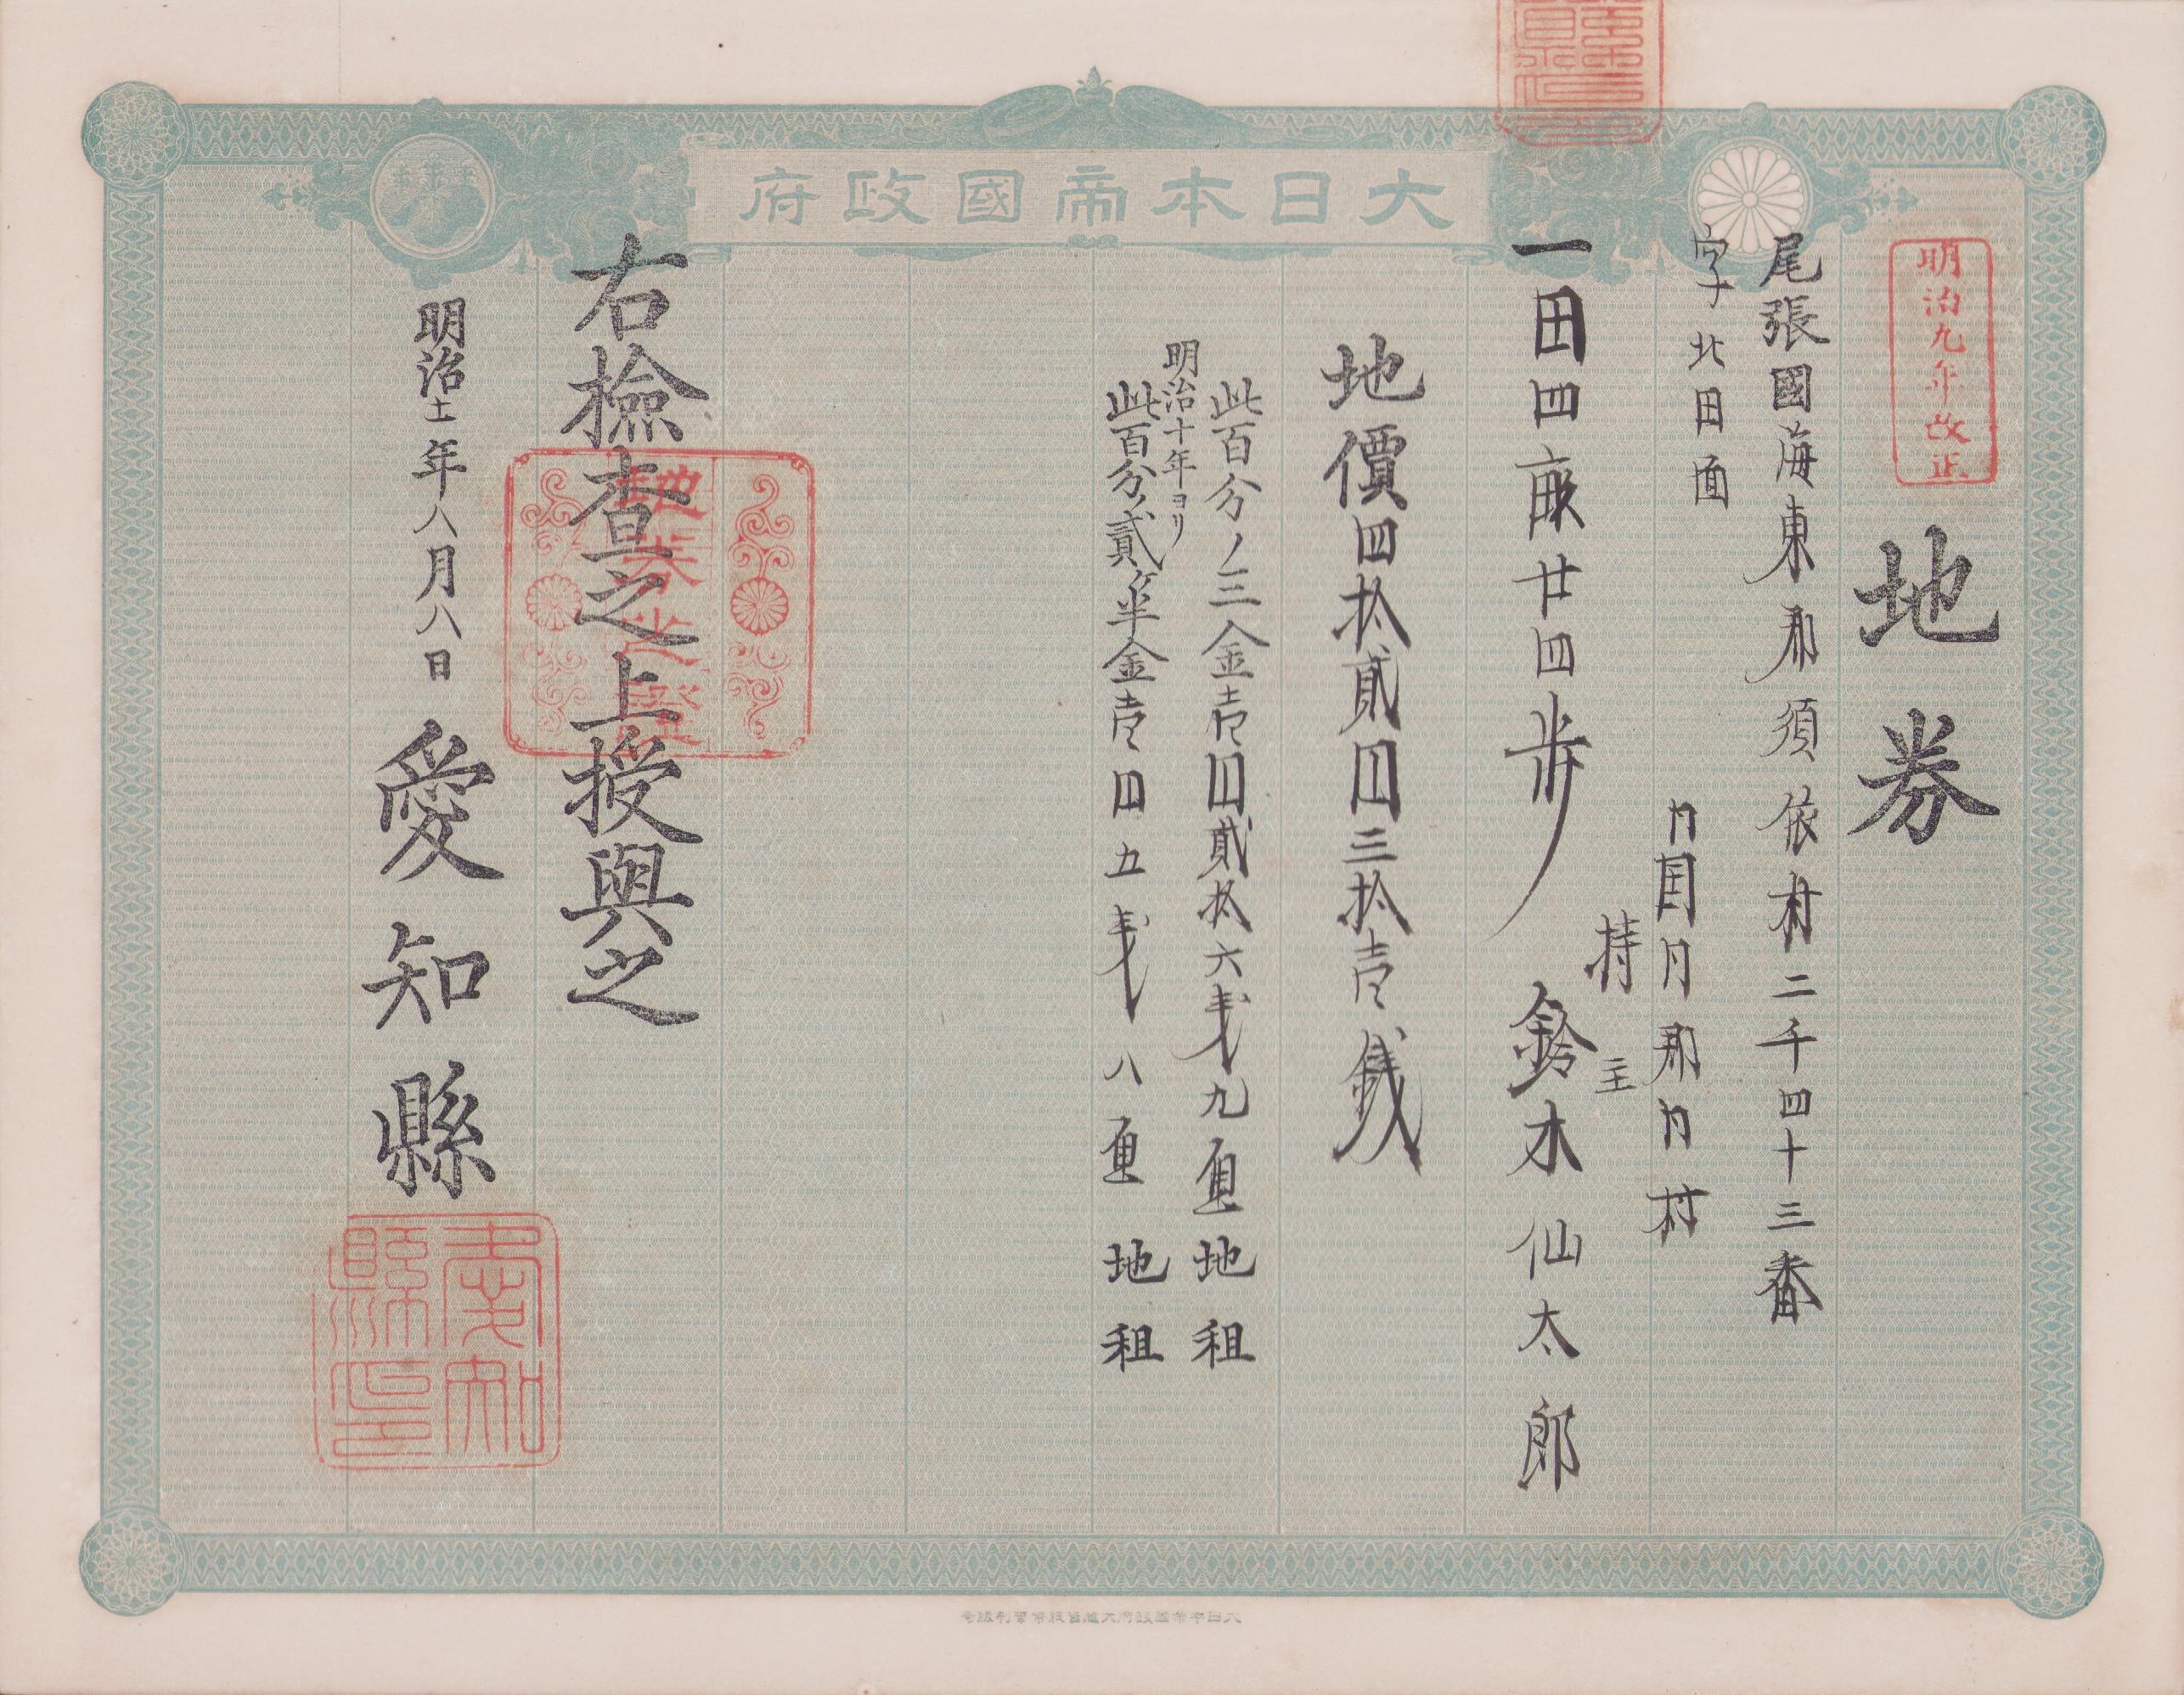 大日本帝國政府
明治九年改正
地券
尾張國海東郡須依村二千四十三番
字北田面
同国同郡同村
持主
一田四畝廿四歩 鈴木仙太郎
地價四拾貳円三拾壱銭
此百分ノ三金壱円貳拾六銭九厘地租
明治十年ヨリ
此百分ノ貳ケ半金壱円五銭八厘地租
右檢査之上授與之
地券之證
明治十一年八月八日 愛知縣
愛知縣印
大日本帝國政府大蔵省紙幣寮製造